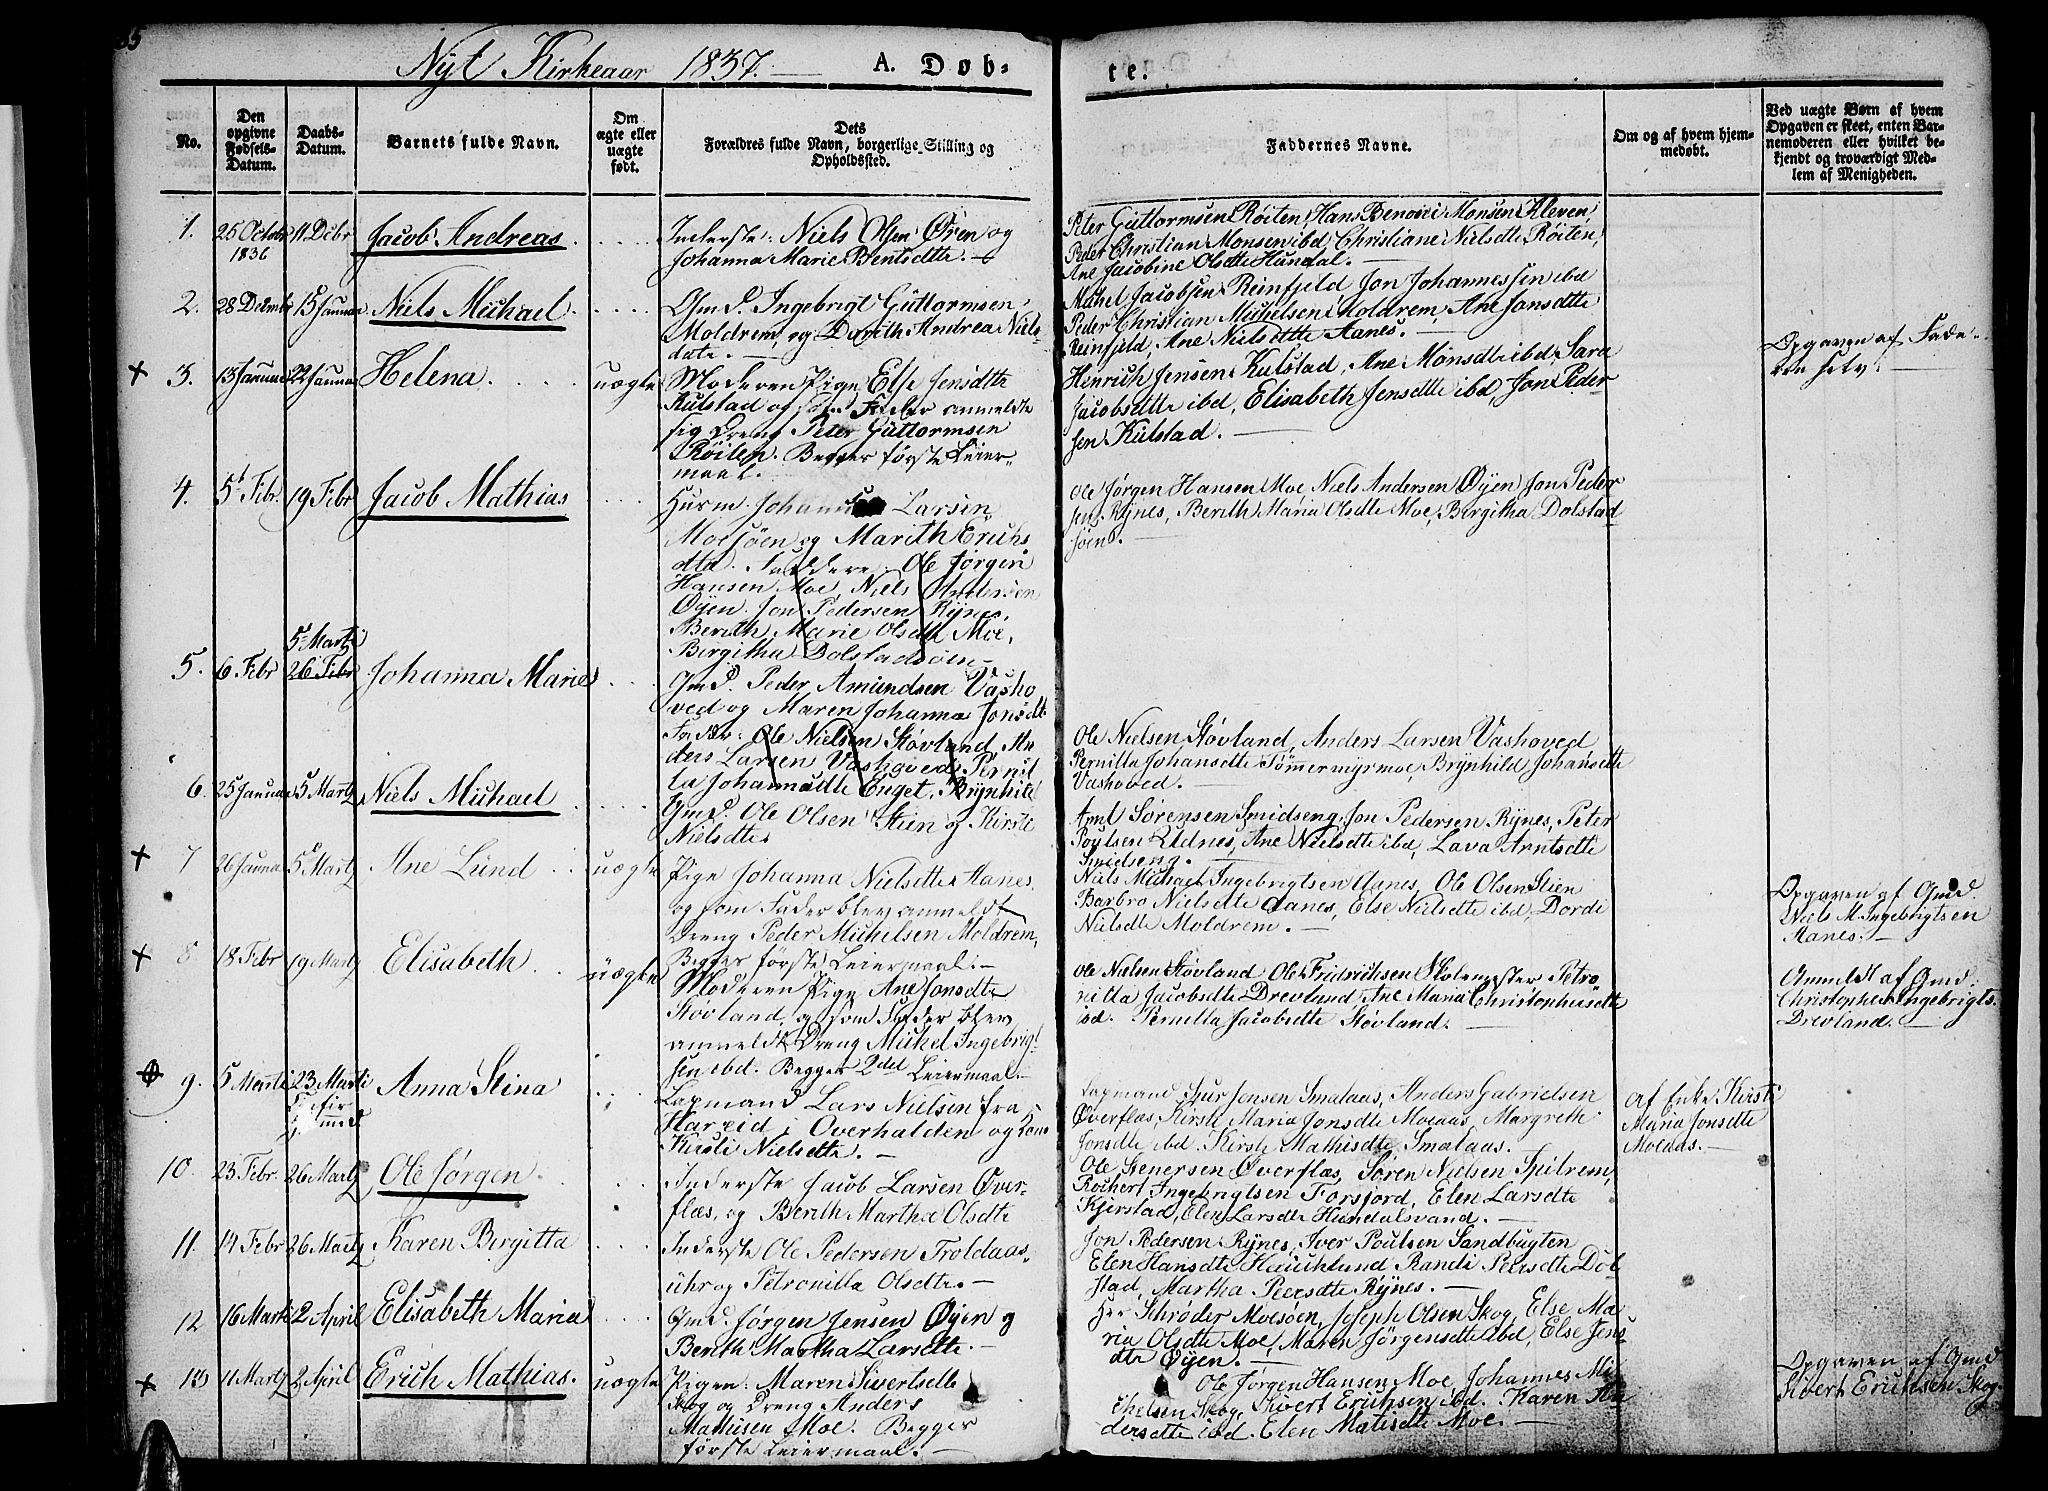 Nyt Kirkeaar 1837. A. Døb-
te.
No.
Den opgivne Fødsels-Datum.
Daabs-Datum.
Barnets fulde Navn.
Om ægte eller uægte født.
Dets Forældres fulde Navn, borgerlige Stilling og Opholdssted.
Faddernes Navne.
Om og af hvem hjem-
medøbt.
Ved uægte Børn af hvem
Opgaven er skeet, enten Bar-
nemoderen eller hvilket be-
kjendt og troværdigt Med-
lem af Menigheden.
1. 25 Octobr 1836 11 Dcbr Jacob Andreas
Inderste Niels Olsen Øren og
Johanna Marie Bentsdtte.
Peter Guttormsen Røiten, Hans Benoni Monsen Kleven,
Peder Christian Monsen ibd, Christiane Nielsdtte Røiten,
Ane Jacobine Olsdtte Hundal.
2. 28 Dcembr 15 Januar Niels Michael
Gmd. Ingebrigt Guttormsen
Moldrem, og Dorith Andrea Niels
datr.
Mikel Jacobsen Reinfjeld Jon Johannessen ibd
Peder Christian Michelsen Moldrem, Ane Jonsdtte
Reinfjeld, Ane Nielsdtte Aanes.
3. 13 Januar 22 Januar Helena. uægte
Moderen Pige Else Jensdtte
Kulstad og som Fader anmeldte
sig Dreng Peter Guttormsen
Røiten. Begges første Leier-
maal.
Henrich Jensen Kulstad, Ane Monsdtte ibd, Sara
Jacobsdtte ibd, Elisabeth Jensdtte ibd, Jon Peder
sen Kulstad.
Opgaven af Fade-
ren selv.
4. 5t Febr. 19 Febr Jacob Mathias
Husm. Larsen
Mosjøen og Marith Erichs
dtte. Faddere Ole Jørgen
Hansen Moe, Niels Andersen
Øyen. Jon Pedersen Rynes,
Berith Marie Olsdtte Moe,
Birgitha Dolstadsøen
Ole Jørgen Hansen Moe, Niels Andersen Øyen Jon Peder
sen Rynes, Berith Maria Olsdtte Moe, Birgitha Dolstad
søen.
5. 6 Febr 5 Martz 26 Febr Johanna Marie
Gmd. Peder Amundsen Vasho
ved og Maren Johanna Jonsdt.
Faddr: Ole Nielsen Støvland, An
ders Larsen Vashoved, Pernil
la Johannsdtte Enget, Brynhild
Ole Nielsen Støvland, Anders Larsen Vashoved
Pernilla Johansdtte Tømmermyrmoe, Brynhild Johansdtte
Vashoved.
6. 25 Januar 5 Martz Niels Michael
Gmd. Ole Olsen Stien og Kirsti
Nielsdtte
Arnt Sørensen Smidseng, Jon Pedersen Rynes, Peter
Poulsen Zidnes, Ane Nielsdtte ibd, Lava Arntsdtte
Smidseng.
7 26 Januar 5 Martz Ane Lund uægte
Pige Johanna Nielsdtte Aanes,
og som Fader blev anmeldt
Dreng Peder Michelsen Moldrem,
Begges første Leiermaal.
Niels Michael Ingebrigtsen Aanes, Ole Olsen Stien
Barbro Nielsdtte Aanes, Else Nielsdtte ibd, Dordi
Nielsdtte Moldrem.
Opgaven af Gmd.
Niels M. Ingebrigtsen
Aanes.
8 18 Febr 19 Martz Elisabeth uægte
Moderen Pige Ane Jonsdtte
Støvland, og som Fader blev
anmeldt Dreng Michel Ingebrigt-
sen ibd. Begges 2det Leiermaal.
Ole Nielsen Støvland Ole Fridrichsen Skolemester Petro
nilla Jacobsdtte Drevland, Ane Maria Christophersdtte
ibd. Pernilla Jacobsdtte Støvland.
Anmeldt af Gmd.
Christopher Ingebrigts.
Drevland.
9. 5 Marti 23 Marti Anna Stina
Lapmand Lars Nielsen fra
Hareid i Overhalden og Kone
Kirsti Nielsdtte.
Lapmand Sjur Jonsen Smalaas, Anders Gabrielsen
Øverflæs, Kirsti Maria Jonsdtte Molaas, Margreth
Jonsdtte ibd. Kirsti Mathisdtte Smalaas.
af Enke Kirsti
Maria Jonsdtte
Molaas.
10. 23 Febr. 26 Martz Ole Jørgen
Inderste Jacob Larsen Øver-
flæs, og Berith Martha Olsdtte
Ole Stenersen Øverflæs, Søren Nielsen Spilrem,
Rochert Ingebrigtsen Forsjord, Elen Larsdtte
Kjerstad, Elen Larsdtte Hundalsvand.
11. 14 Febr 26 Martz Karen Birgitta
Inderste Ole Pedersen Troldaas
uhr og Petronilla Olsdtte.
Jon Pedersen Rynes, Iver Poulsen Sandbugten
Elen Hansdtte Randi Peersdtte Dol
stad, Martha Peersdtte Rynes.
12 16 Marti 2 April Elisabeth Maria
Gmd. Jørgen Jensen Øyen og
Berith Martha Larsdtte.
Herr Schrøder Mosøen, Joseph Olsen Skog, Else Ma
ria Olsdtte Moe, Maren Jørgensdtte ibd, Else Jens
dtte Øyen.
13 11 Martz 2 April Erich Mathias. uægte
Pigen: Maren Sivertsdtte
Skog og Dreng Anders
Mathisen Moe. Begges
første Leiermaal.
Ole Jørgen Hansen Moe, Johannes Mi
chelsen Skog, Sivert Erichsen ibd. Karen An
dersdtte ibd. Elen Matisdtte Moe.
Opgaven af Gmd
Sivert Erichsen Skog.